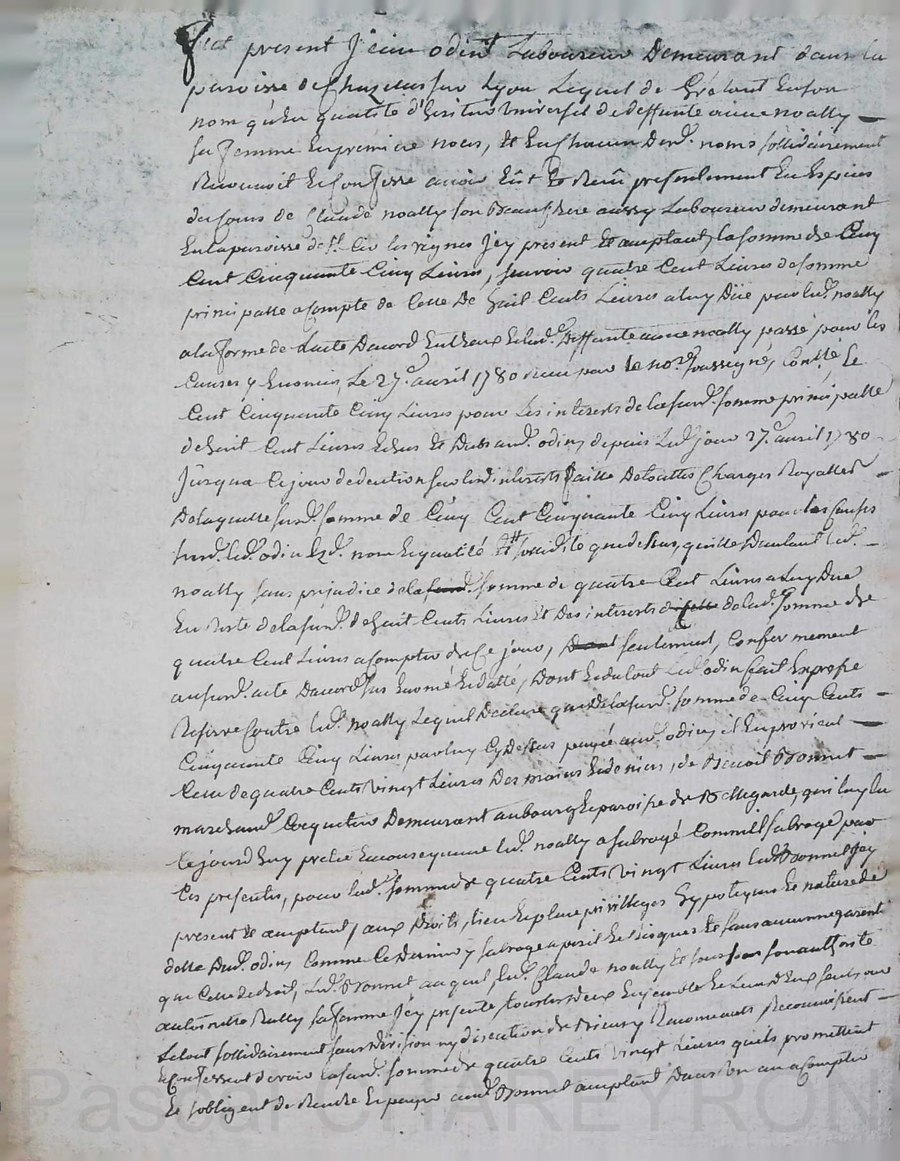 fut present Jean odin Laboureur Demeurant dans la
paroisse de Chazelles sur Lyon Lequel de Gré tant En son
nom qu'En qualité d'heritier Universel de deffunte anne noally
sa femme En premiere noces, Et En Chacun Desd. noms sollidairement
Reconnoit Et Confesse avoir Eut Et Reçû presentement En Especes
du Cours de Claude noally son Beau frere aussy Laboureur demeurant
En la paroisse de st Cir les vignes Jcy present Et acceptant, la somme de Cinq
Cent Cinquante Cinq Livres, scavoir quatre Cent Livres de somme
principalle a Compte de Celle De huit Cents Livres a luy Düe par led. noally
a la forme de Lacte Dacord Entr'eux Et lad. Deffunte anne noally passé pour les
Causes y Enoncées, Le 27.e avril 1780 Reçu par le no.re soussigné, Contlé, Et
Cent Cinquante Cinq Livres pour Les interests de lasusd. somme principalle
de huit Cent Livres Echus Et Dubs aud. odin depuis Led. jour 27.e avril 1780
Jusqua Ce jour deduction sur lesd. interests faitte De touttes Charges Royalles
De laquelle susd. somme de Cinq Cent Cinquante Cinq Livres pour les Causes
susd. led. odin Esd. nom Et qualité Et sollidité que dessus, quitte Dautant led.
noally sans prejudice de la susd. somme de quatre Cent Livres a Luy Due
En Reste de la susd. de huit Cents Livres Et Des interests d'icelle de lad. somme de
quatre Cent Livres a Compter de Ce jour, Dont seulement, Conformement
au susd. acte Dacord sus Enoncé Et datté, Dont Et du tout led. odin fait Expresse
Reserve Contre led. noally Lequel Declare que de la susd. somme de Cinq Cents
Cinquante Cinq Livres par luy Cy Dessus payée aud. odin, il En provient
Celle de quatre Cents Vingt Livres Des mains Et deniers, de Benoit Bonnet
marchand Coquetier Demeurant au bourg Et paroisse de Bellegarde, qui luy la
Cejourdhuy pretée En Consequence led. noally a subrogé Comme il subroge par
Ces presentes, pour lad. somme de quatre Cents Vingt Livres led. Bonnet Jcy
present Et acceptant, aux Droits, lieu Et place privilleges hypoteques Et nature de
dette Dud. odin, Comme Ce Dernier y subroge a peril Et Risques Et sans aucune garentie
que Celle de droit, led. Bonnet auquel led. Claude noally Et sous son authorité
antoinette Rully sa femme Jcy presente tous les deux Ensemble Et L'un d'Eux seul pour
Le tout sollidairement sans division ny discution de Biens, Reconnoissent
Et Confessent devoir lasusd. somme de quatre Cents Vingt Livres quils promettent
Et sobligent de Rendre Et payer aud. Bonnet acceptant Dans Un an a Compter
Pascal CHAREYRON